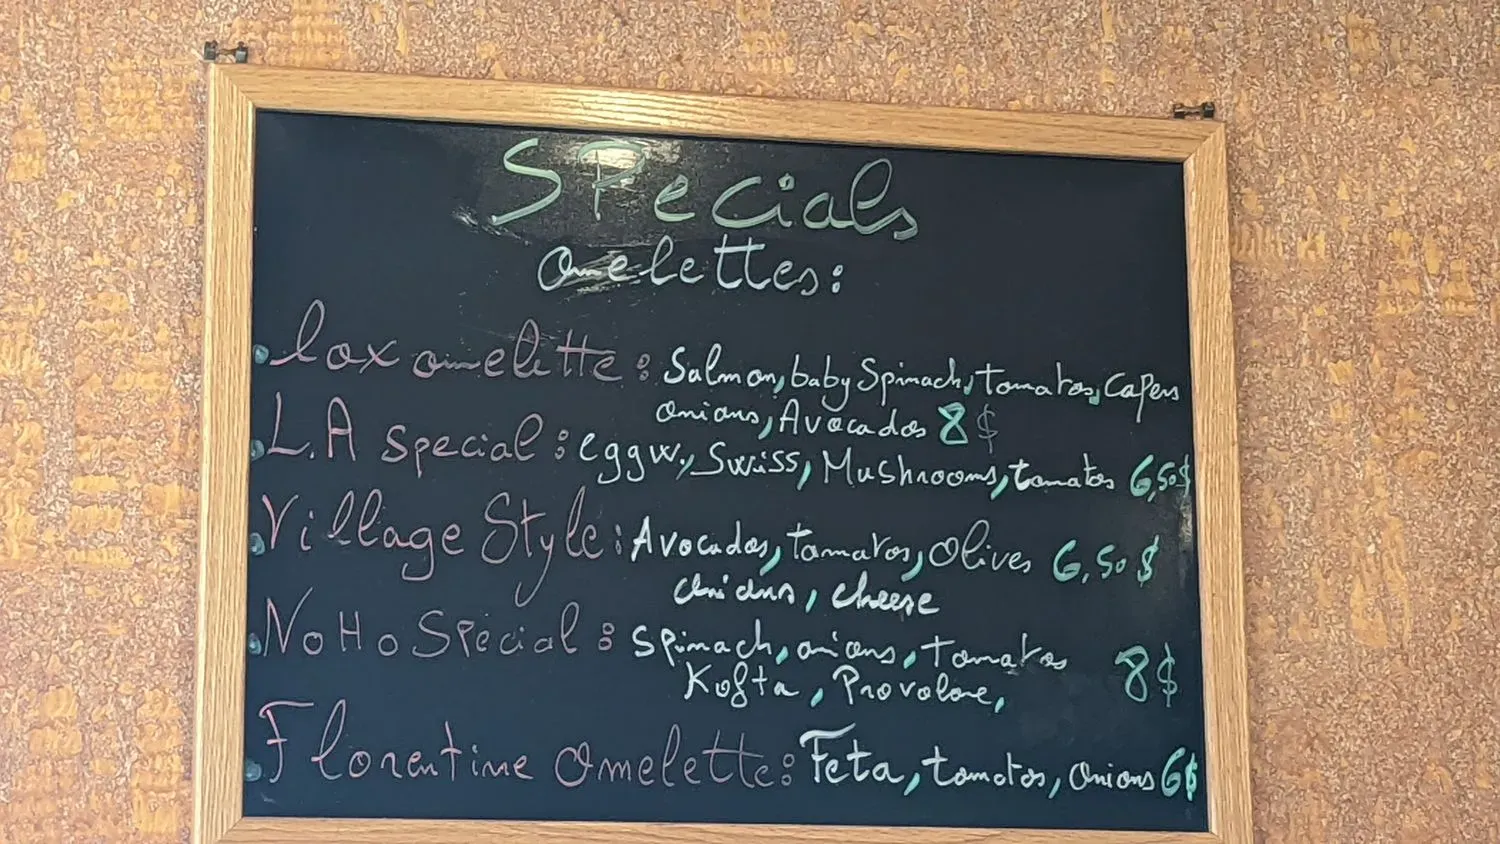 SPecials
omelettes:
• lox omelette: Salmon, baby Spinach, tomatos, capers
onions, Avocados 8$
• L.A special: eggw., Swiss, Mushrooms, tomatos 6,50$
• Village Style: Avocados, tomatos, Olives 6,50$
onions, cheese
• NoHo Special: Spinach, onions, tomatos 8$
Kofta, Provolone,
• Florentine omelette: Feta, tomatos, onions 6$